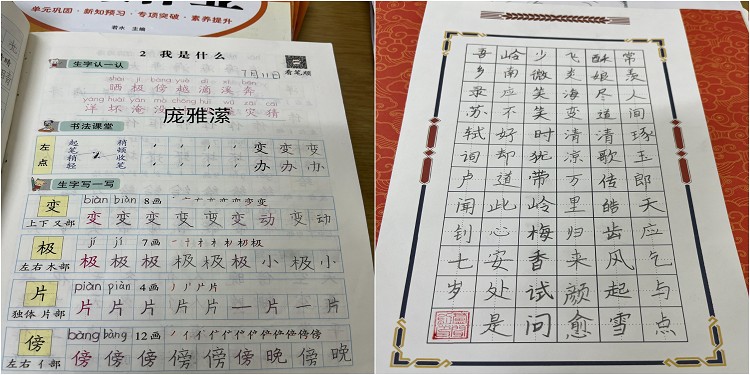 单元巩固·新知预习·专项突破·素养提升
若水 主编
2 我是什么
生字认一认
7月11日
看笔顺
晒 极 傍 越 滴 溪 奔
洋 坏 淹 没
灾 猜
庞雅潆
书法课堂
左点
起笔稍轻
稍顿收笔
变 变 变
办 办 办
生字写一写
变 biàn biàn 8画
上下 又部 变 变 变 变 变 变 动 变 动
极 jí jí 7画
左右 木部 极 极 极 极 极 极 小 极 小
片 piàn piàn 4画
独体 片部 片 片 片 片 片 一 片 一 片
傍 bàng bàng 12画
左右 亻部 傍 傍 傍 傍 傍 傍 晚 傍 晚
常羡人间琢玉郎天应乞与点
酥娘尽道清歌传皓齿风起雪
飞炎海变清凉万里归来颜愈
少微笑笑时犹带岭梅香试问
岭南应不好却道此心安处是
吾乡录苏轼词闻钊七岁